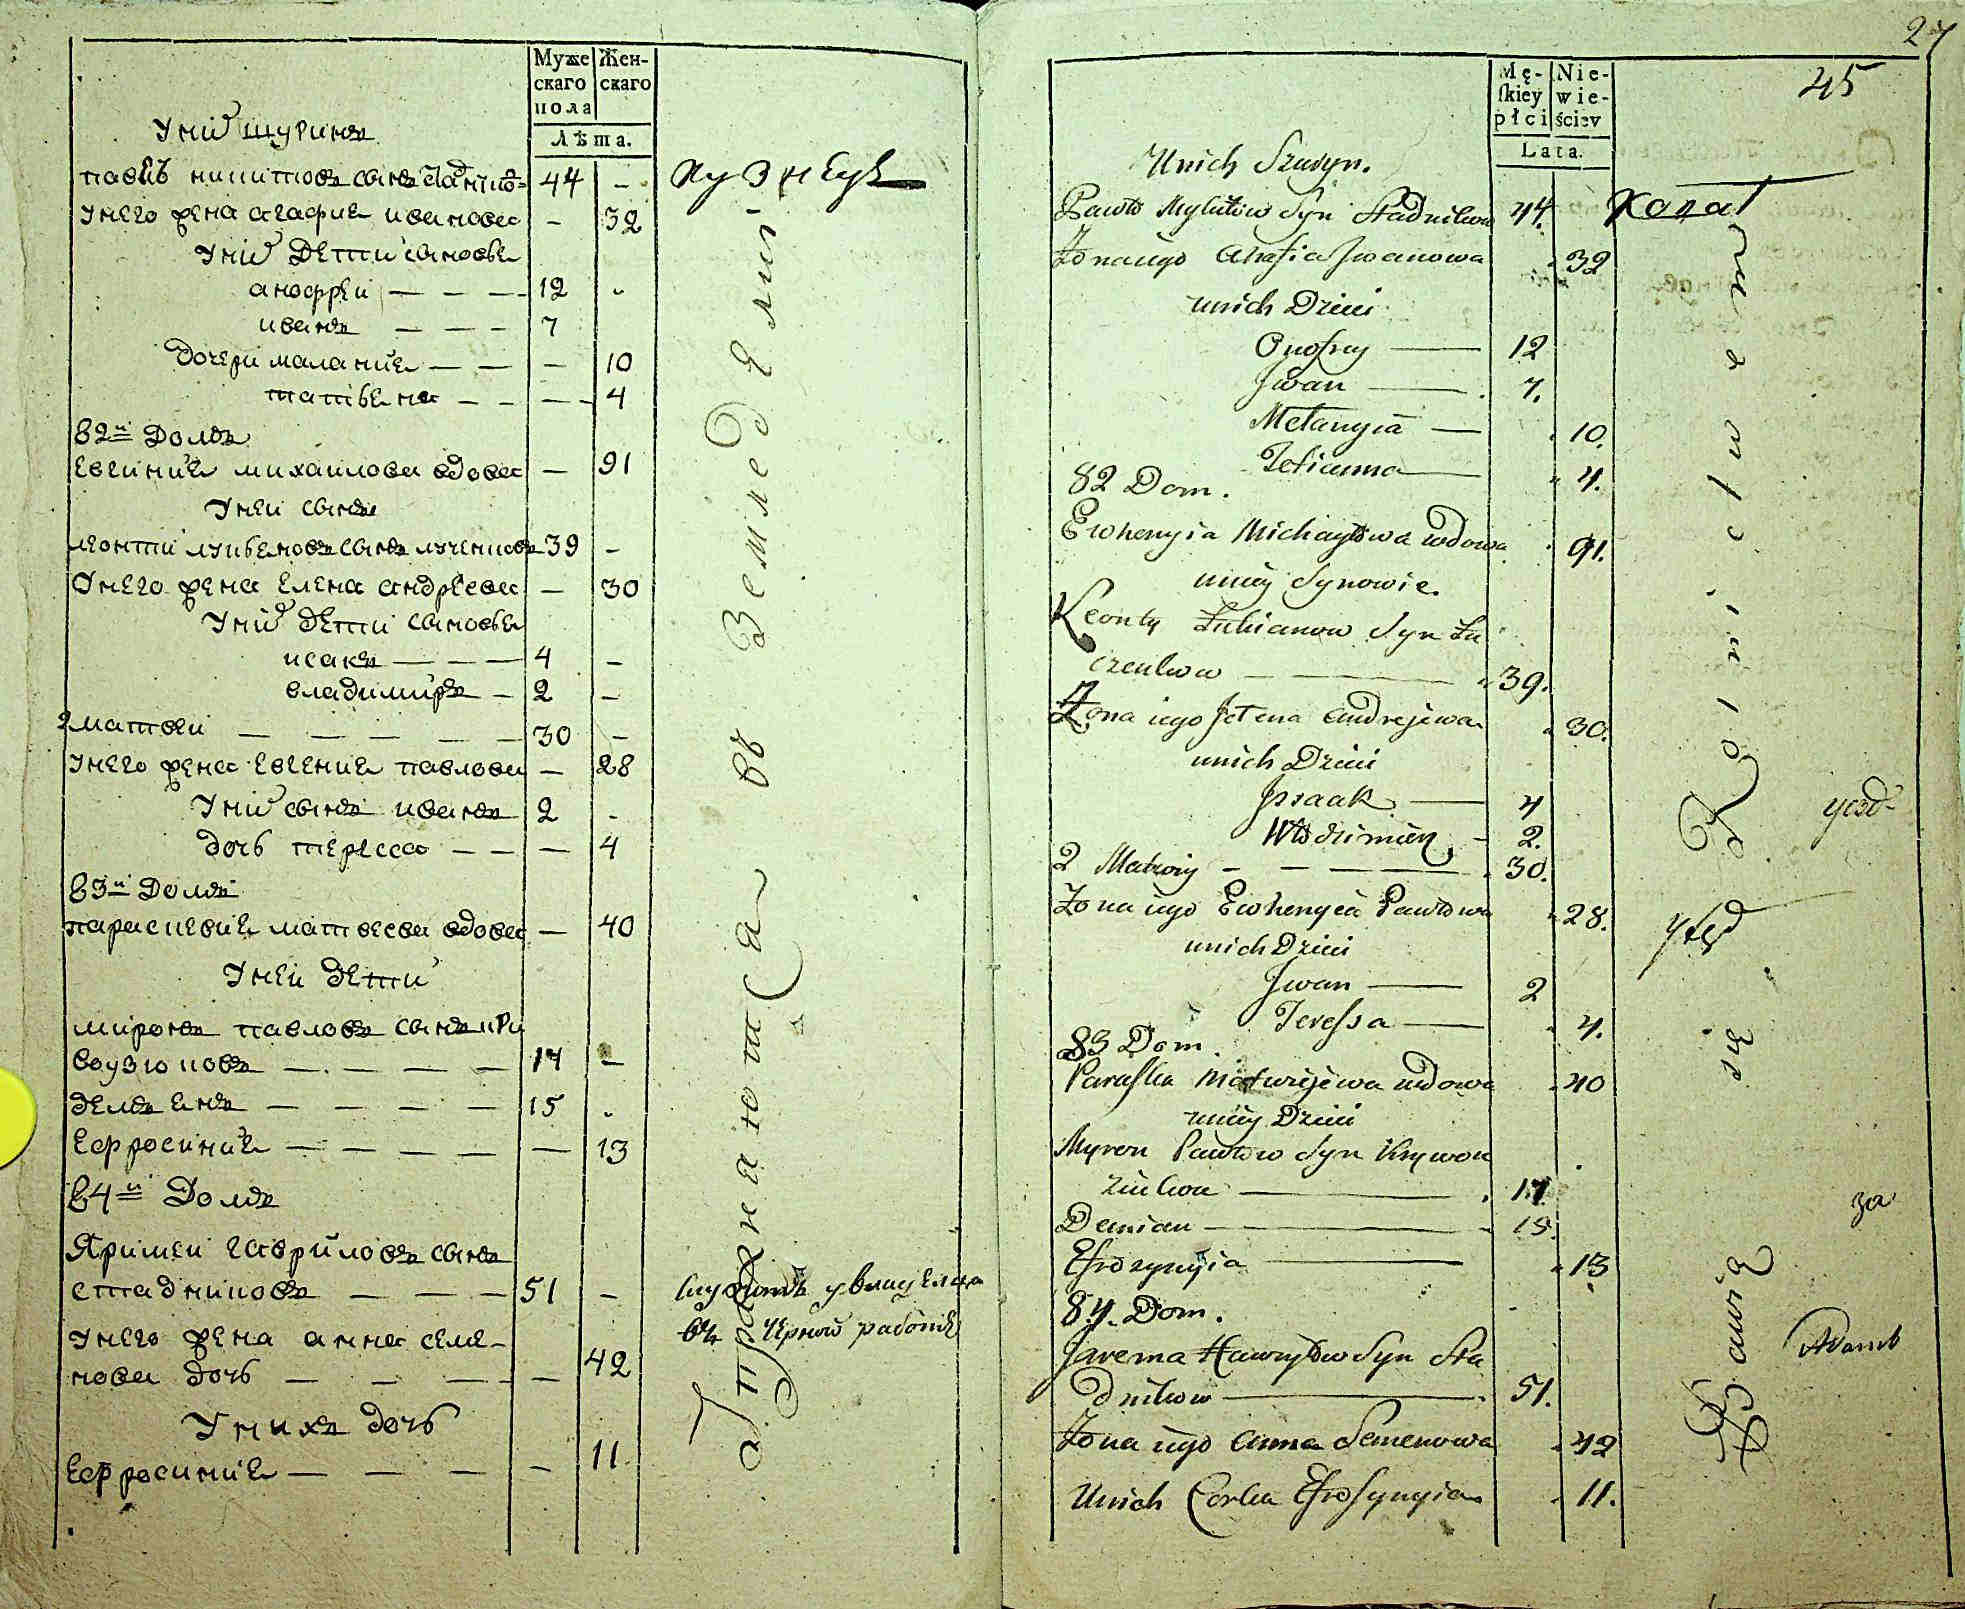 Муже
скаго
пола
Жен-
скаго
Лѣта.
Унихъ шуринъ
павелъ никитовъ сынъ 44 –
Унего жена агафия иванова – 32
Унихъ дети сыновья
анофрей — — — 12
иванъ — — — 7
дочери малания — — — 10
татьяна — — — 4
82й Домъ
Евгения михаилова вдова — 91
Уней сынъ
леонти лукьяновъ сынъ лученковъ 39 –
Унего жена Елена андреева — 30
Унихъ дети сыновья
исакъ — — — 4 –
владимиръ — 2 –
2 матвей — — — — — 30 –
Унего жена Евгения павлова — 28
Унихъ сынъ иванъ 2
дочь тересса — — — 4
83й Домъ
параскевия матвеева вдова — 40
Уней дети
миронъ павловъ сынъ кри
воузюковъ — — — — 17 –
демьянъ — — — — 15
Ефросиния — — — — — 13
84й Домъ
Яримей гавриловъ сынъ
стадниковъ — — — 51 –
Унего жена анна семе-
нова дочь — — — — 42
Унихъ дочь
Ефросиния — — — — 11
кузнецъ
Упражняются въ Земледелии
служитъ у
въ черной работе
27
45
Mę-
skiey
płci
Nie-
wie-
ściey
Lata.
Unich Szuryn.
Pawło Mykitów Syn Stadnikow 44.
Żona iego Ahafia Iwanowa 32
unich Dzieci
Onofrey —— 12
Iwan —— 7.
Mełanyia — 10.
Tetianna —— 4.
82 Dom.
Ewhenyia Michayłowa wdowa 91.
uniey Synowie.
Leonty Łukianow Syn Łu
czenkow — 39.
Żona iego Jełena Andrejewa 30.
unich Dzieci
Issaak —— 4
Włodzimierz – 2.
2 Matwiy – — — 30.
Żona iego Ewhenyia Pawłowa 28.
unich Dzieci
Iwan —— 2
Teressa —— 4.
83 Dom.
Paraska Matwijewa wdowa 40
uniey Dzieci
Myron Pawłow Syn Krywou
ziukow —— 17
Demian —— 15.
Efrozynyia —— 13
84. Dom.
Jarema Hawryłow Syn Sta
dnikow —— 51.
Żona iego Anna Semenowa 42
Unich Corka Efrosynyia 11.
Kowal
Bawią się Rolnictwem
за